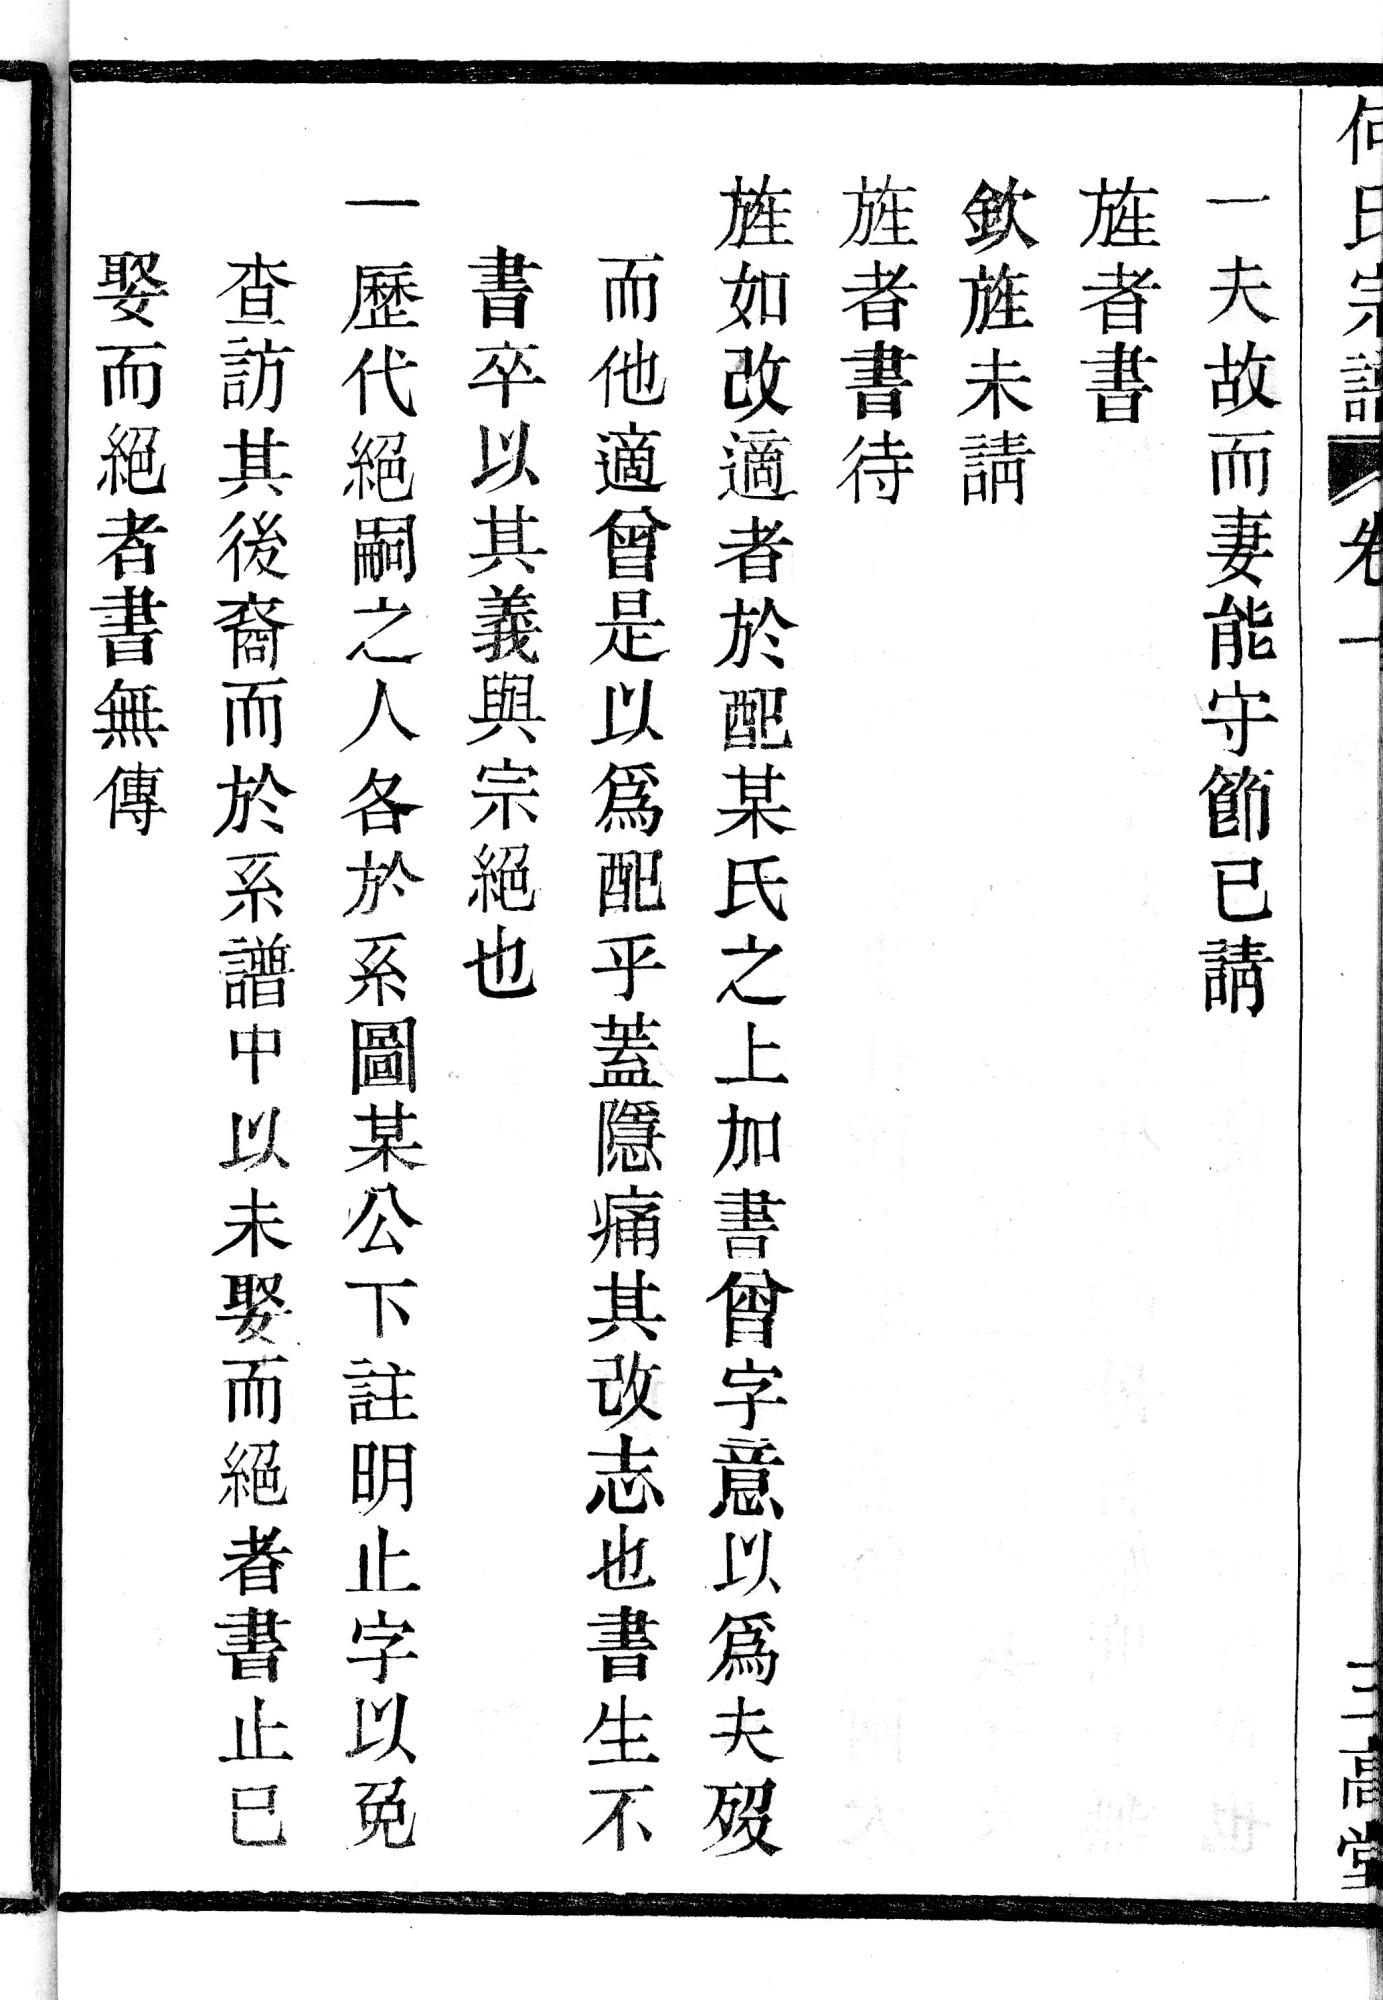 何氏宗譜 卷一 三高堂
一夫故而妻能守節已請
旌者書
欽旌未請
旌者書待
旌如改適者於配某氏之上加書曾字意以為夫歿
而他適曾是以為配乎蓋隱痛其改志也書生不
書卒以其義與宗絕也
一歷代絕嗣之人各於系圖某公下註明止字以免
查訪其後裔而於系譜中以未娶而絕者書止已
娶而絕者書無傳